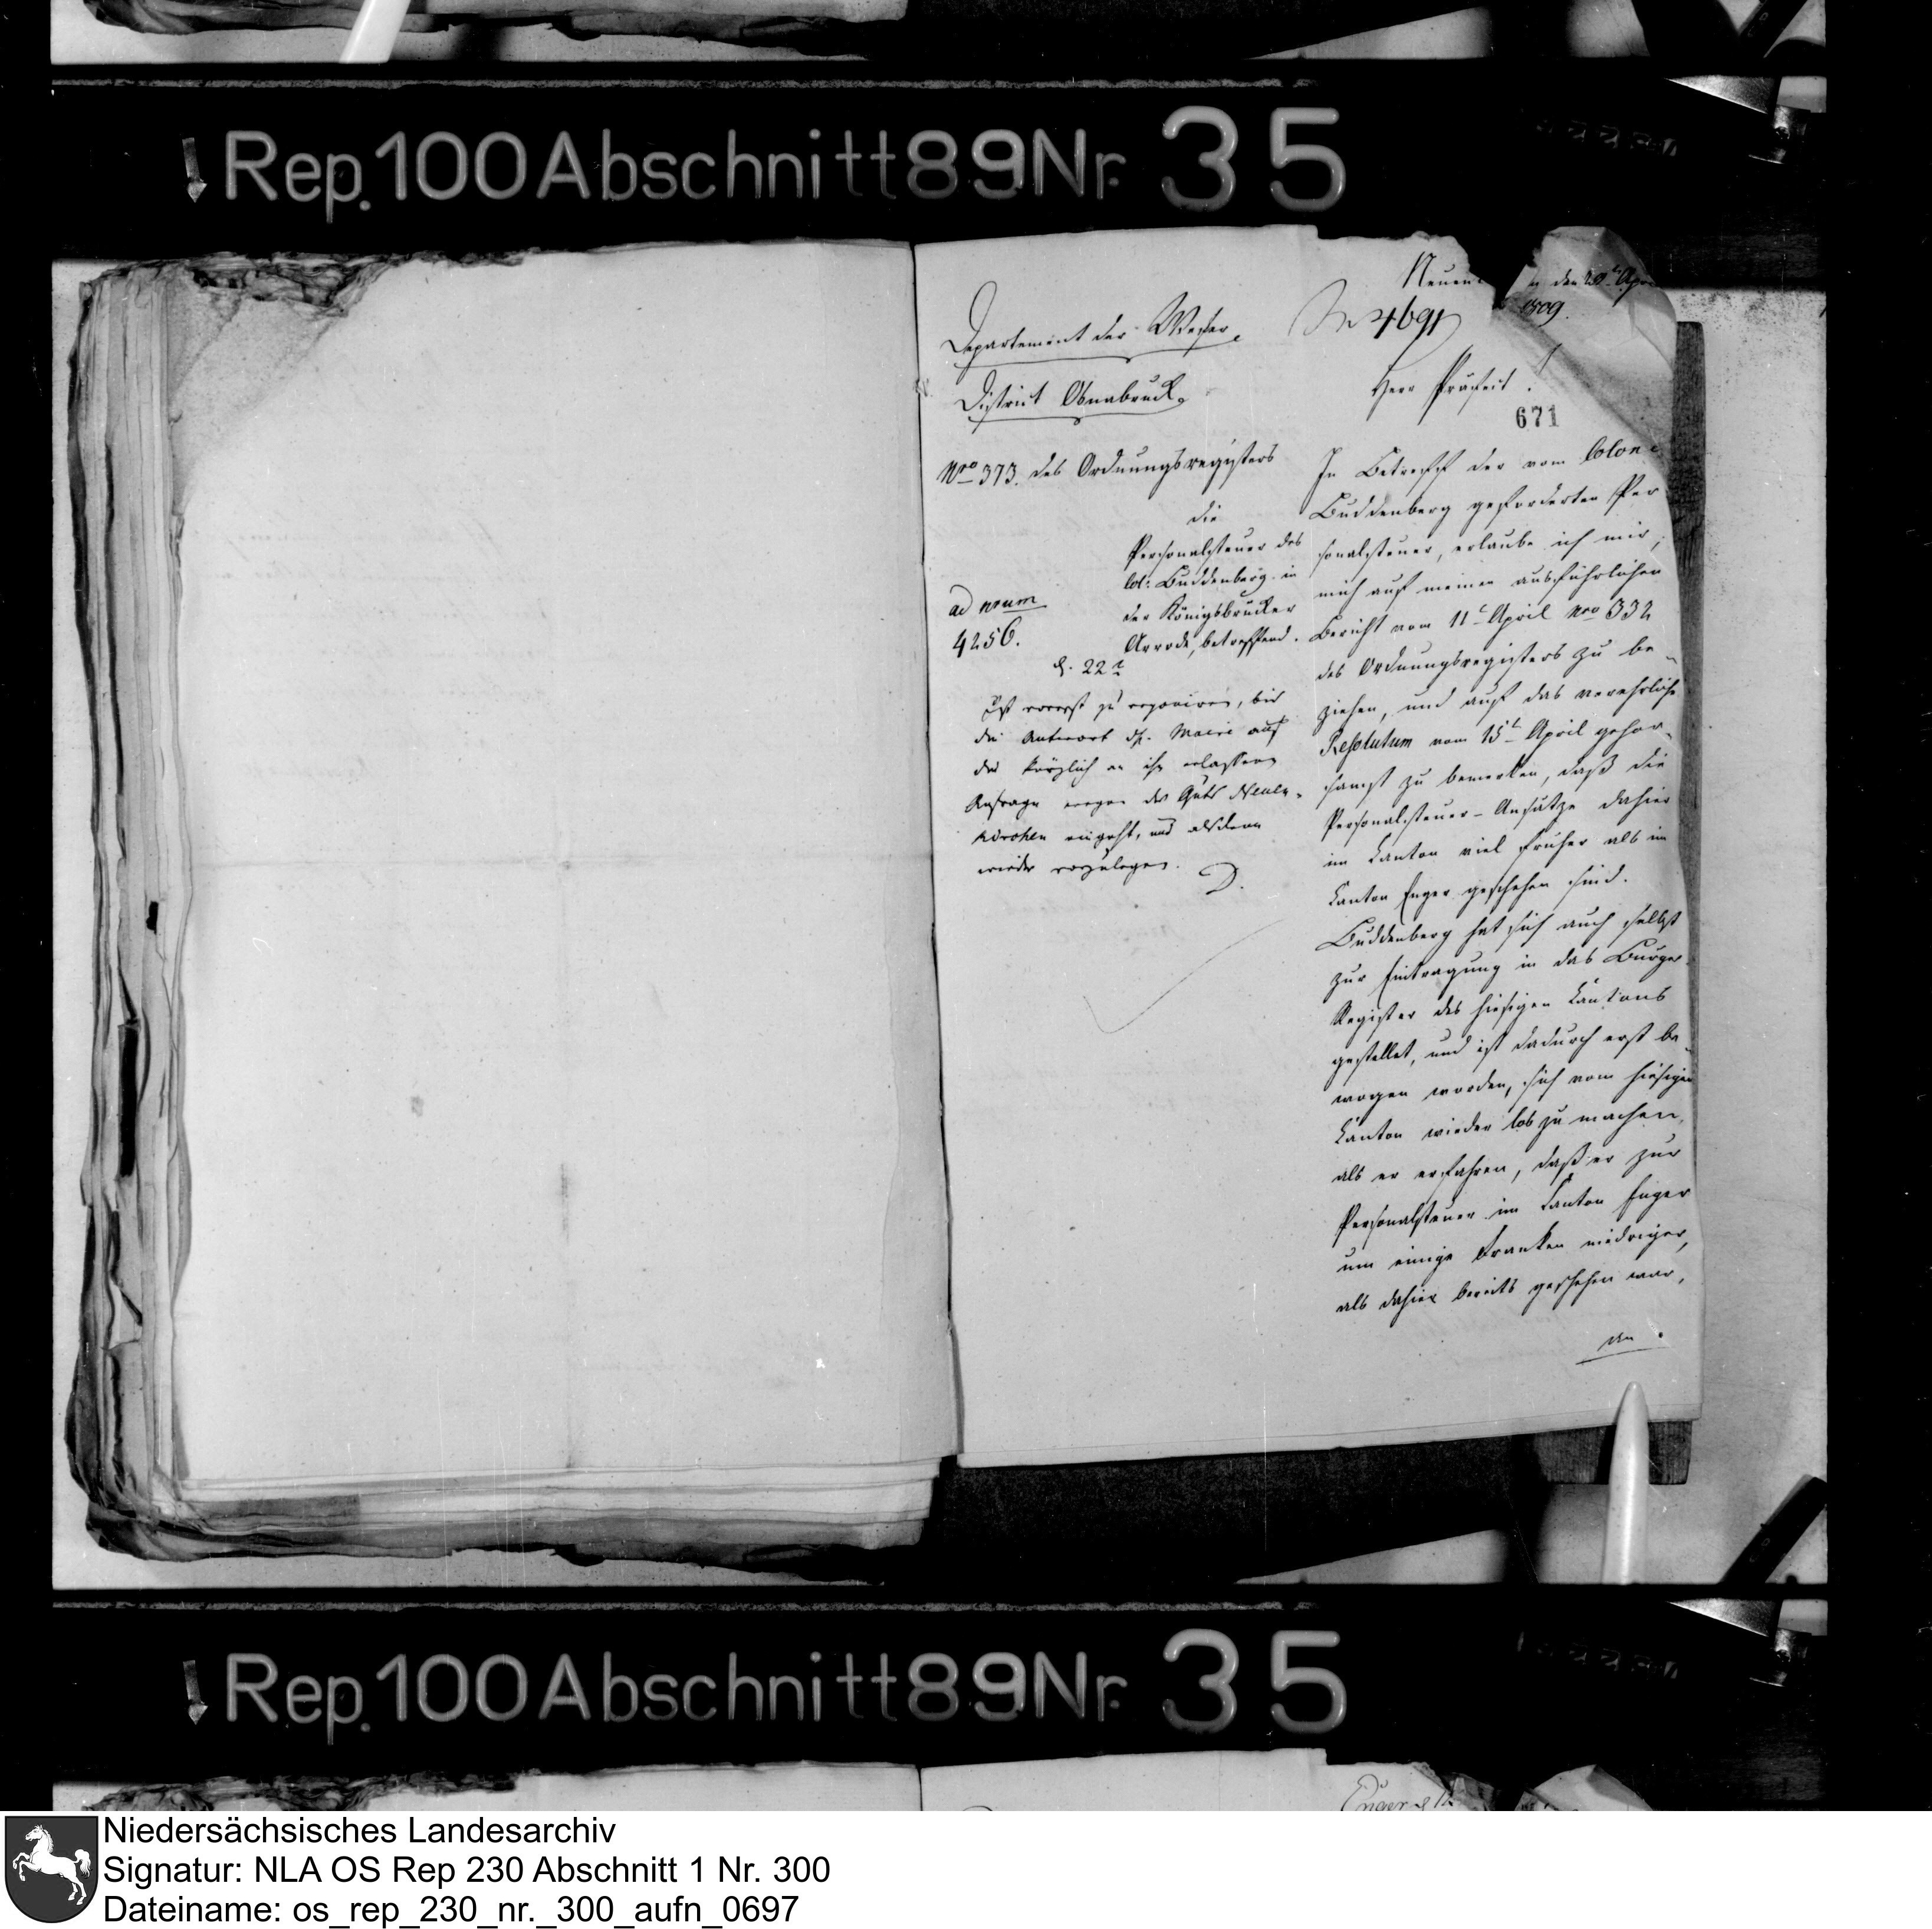 Rep. 100 Abschnitt 89 Nr. 35
Neuen den 20t Apr
1809.
No 4691
Departement der Weser.
District Osnabrück.
Herr Präfect!
671
Nro 373. des Ordnungsregisters
die
Personalsteuer des
Col: Buddenberg in
der Königsbrücker
Arrode, betreffend.
ad num
4256.
d. 22t
Ist vorerst zu reponiren, bis
die Antwort des H. Maire auf
die kürzlich an ihn erlassene
Anfrage wegen des Guts Neuen-
kirchen eingeht, und alsdann
wieder vorzulegen.
D.
In Betreff der vom Colon
Buddenberg geforderten Per
sonalsteuer, erlaube ich mir,
mich auf meinen ausführlichen
Bericht vom 11t April Nro 332
des Ordnungsregisters zu be-
ziehen, und auf das verehrliche
Resolutum vom 15t April gehor-
samst zu bemerken, daß die
Personalsteuer-Ansätze dahier
im Canton viel früher als im
Canton Enger geschehen sind.
Buddenberg hat sich auch selbst
zur Eintragung in das Bürger-
Register des hiesigen Cantons
gestellet, und ist dadurch erst be-
wogen worden, sich vom hiesigen
Canton wieder los zu machen,
als er erfahren, daß er zur
Personalsteuer im Canton Enger
um einige Franken niedriger,
als dahier bereits geschehen war,
an
Rep. 100 Abschnitt 89 Nr. 35
Enger d 12
Niedersächsisches Landesarchiv
Signatur: NLA OS Rep 230 Abschnitt 1 Nr. 300
Dateiname: os_rep_230_nr._300_aufn_0697